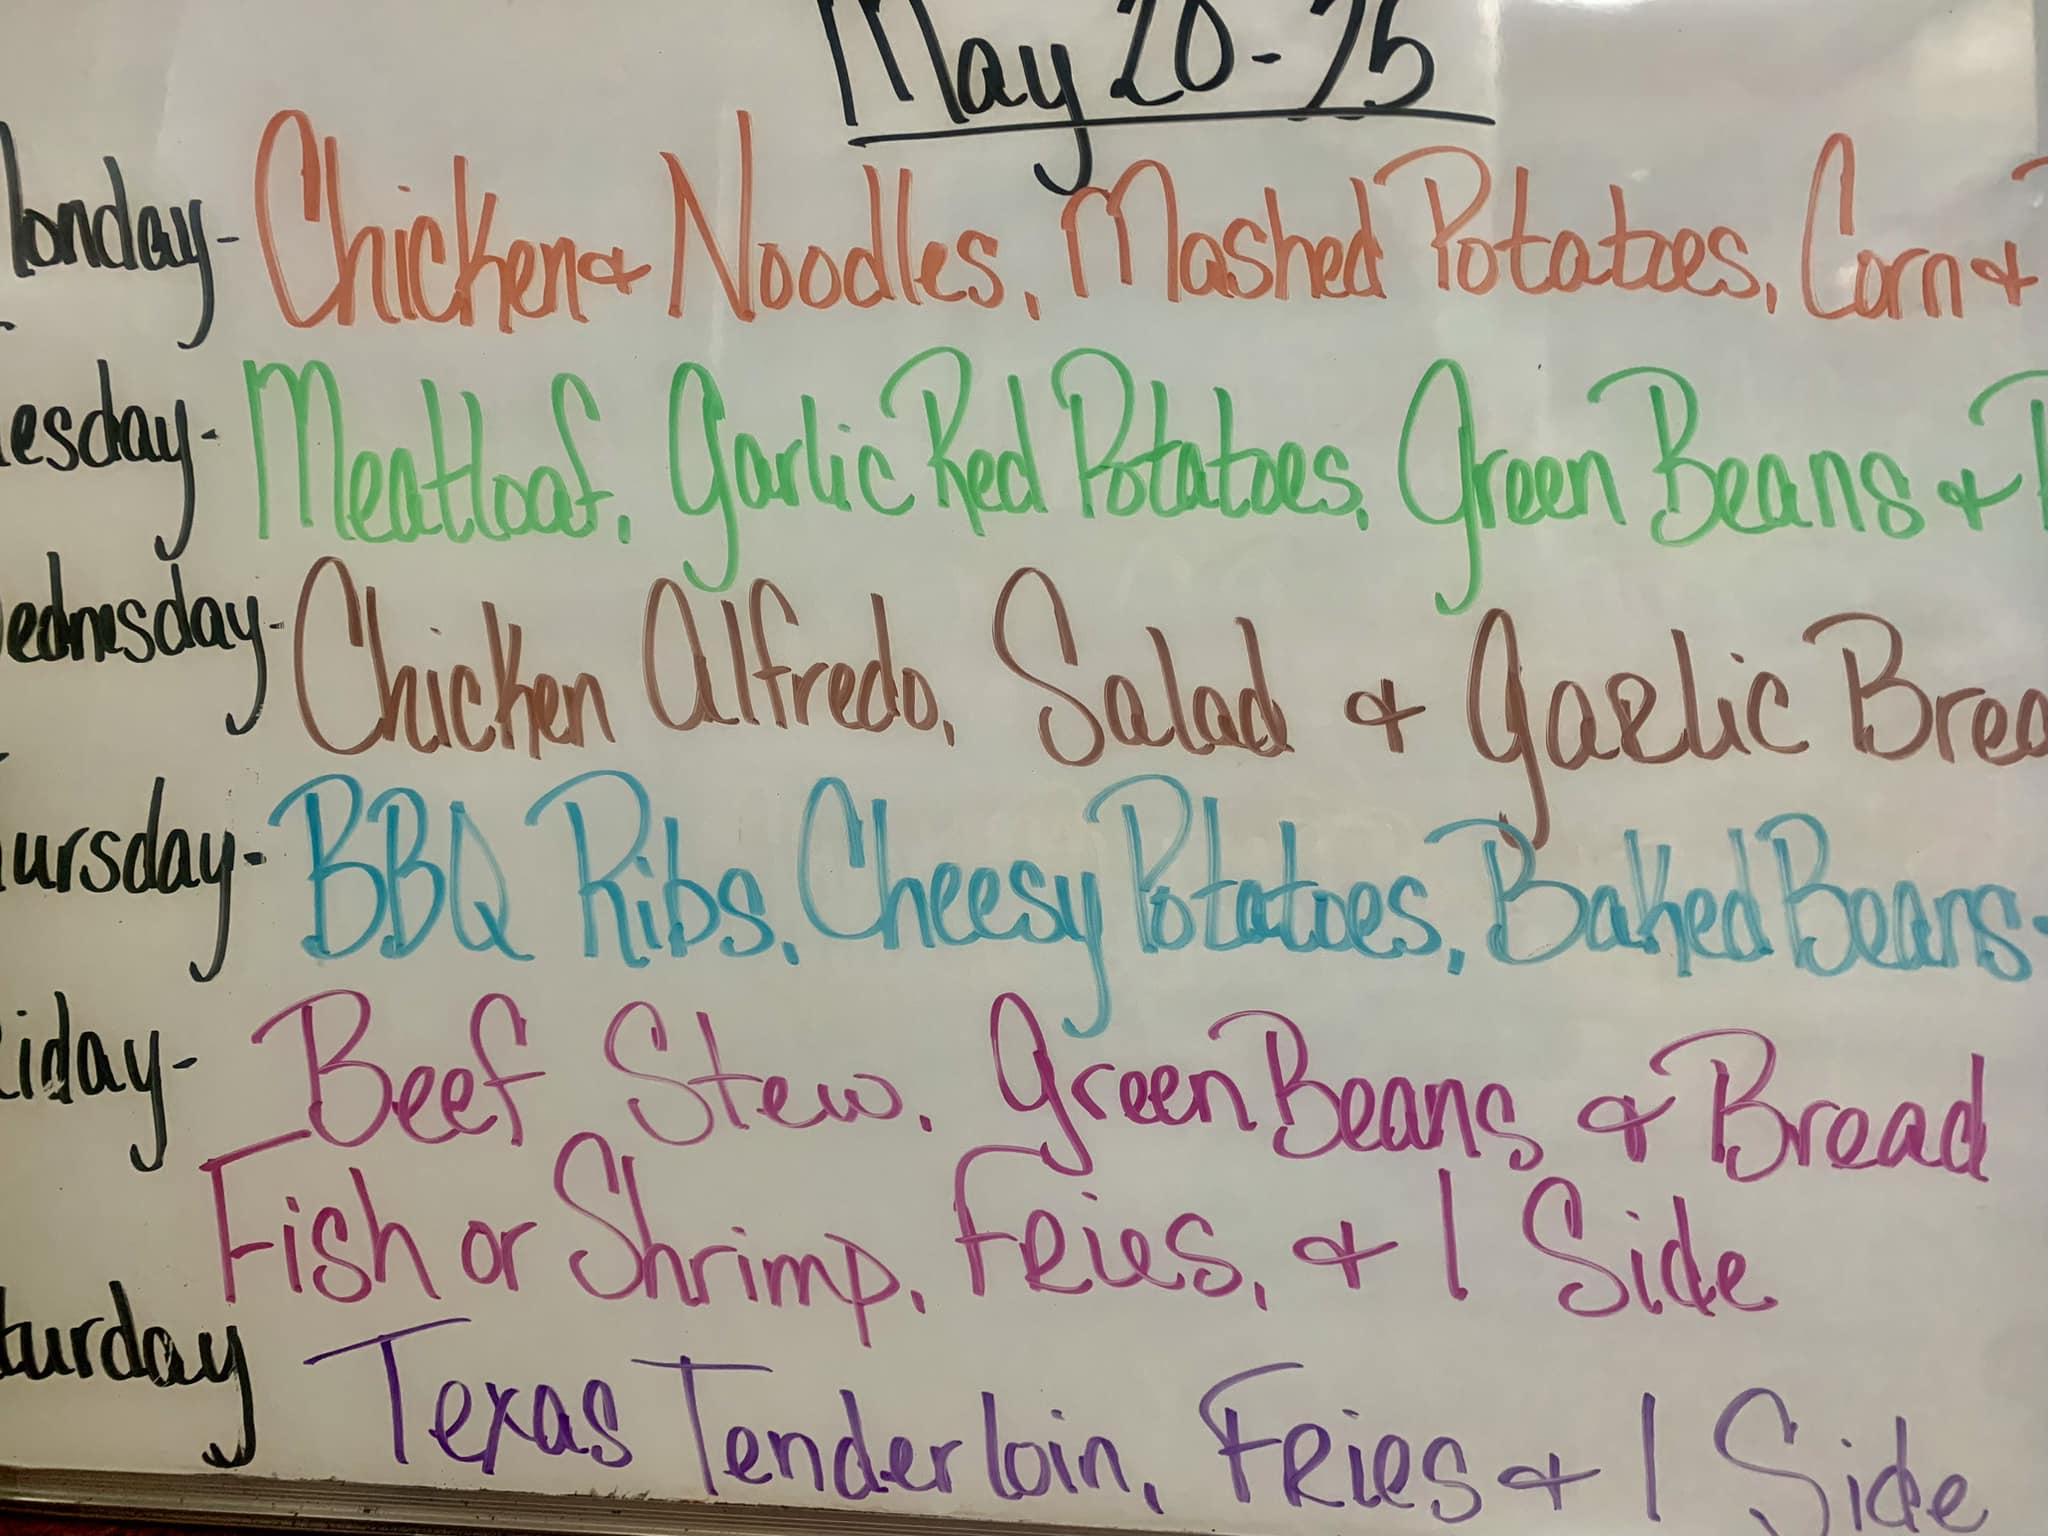 May 20-25
Monday- Chicken & Noodles, Mashed Potatoes, Corn &
Tuesday- Meatloaf, Garlic Red Potatoes, Green Beans &
Wednesday- Chicken Alfredo, Salad & Garlic Bread
Thursday- BBQ Ribs, Cheesy Potatoes, Baked Beans
Friday- Beef Stew, Green Beans & Bread
Fish or Shrimp, Fries, & 1 Side
Saturday Texas Tenderloin, Fries & 1 Side